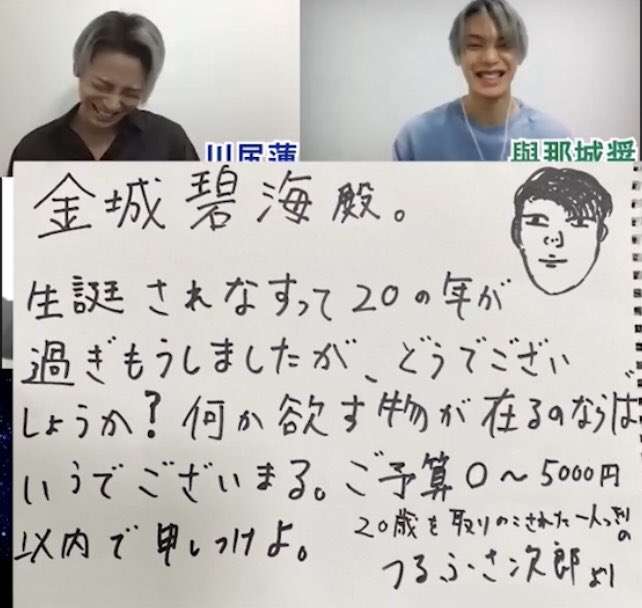 川尻蓮
與那城奨
金城碧海殿。
生誕されなすって20の年が
過ぎもうしましたが、どうでござい
しょうか?何か欲す物が在るのならば
いうでございまる。ご予算0~5000円
以内で申しつけよ。
20歳を取りのこされた一人っきりの
つるふさ次郎より